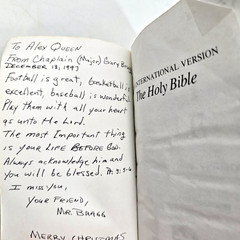 To Alex Queen
From Chaplain (Major) Gary
DECEMBER 13, 1997
Football is great, basketball is
excellent, baseball is wonderful
Play them with all your heart
as unto the Lord.
The most Important thing
is your LIFE BEFORE GOD.
Always acknowledge him and
you will be blessed.
I miss you,
YOUR FRIEND,
MR. BRAGG
MERRY CHRISTMAS
INTERNATIONAL VERSION
The Holy Bible